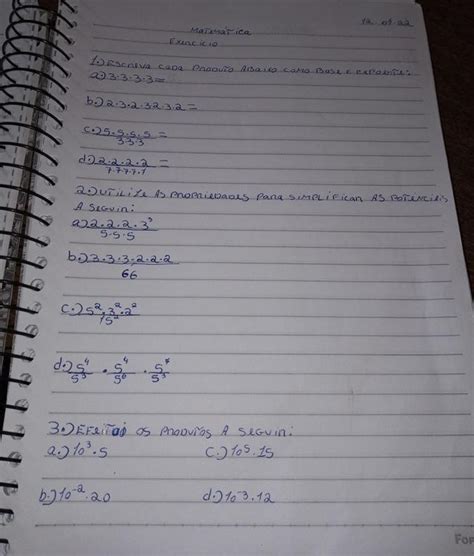 12.09.22
Matemática
Exercício
1.) Escreva cada produto abaixo como base e expoente:
a.) 3·3·3·3=
b.) 2·3·2·32·3·2=
c.) 5·5·5·5 =
3·3·3
d.) 2·2·2·2 =
7·7·7·7
2.) Utilize as propriedades para simplificar as potências
a seguir:
a.) 2·2·2·3³
5·5·5
b.) 3·3·3·2·2·2
66
c.) 5²·3²·2²
15²
d.) 5⁴/5³ · 5⁴/5⁰ · 5⁴/5³
3.) Efetue os produtos a seguir:
a.) 10³·5 c.) 10⁵·15
b.) 10⁻²·20 d.) 10⁻³·12
For